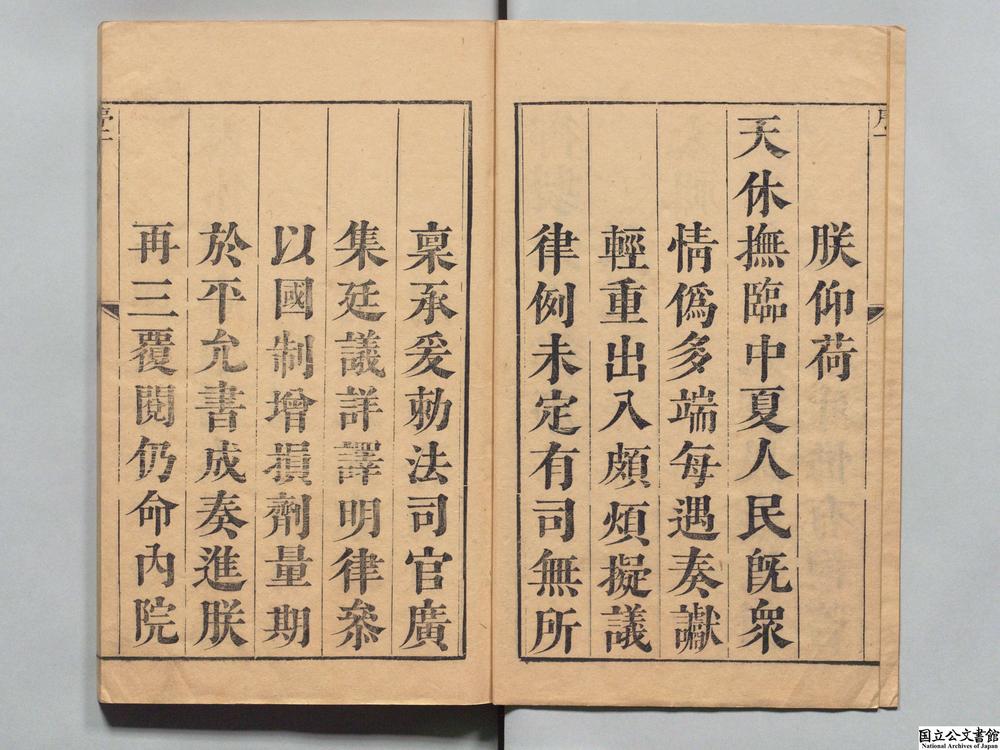 朕仰荷
天休撫臨中夏人民旣衆
情僞多端每遇奏讞
輕重出入頗煩擬議
律例未定有司無所
稟承爰勅法司官廣
集廷議詳譯明律叅
以國制增損劑量期
於平允書成奏進朕
再三覆閱仍命內院
国立公文書館
National Archives of Japan